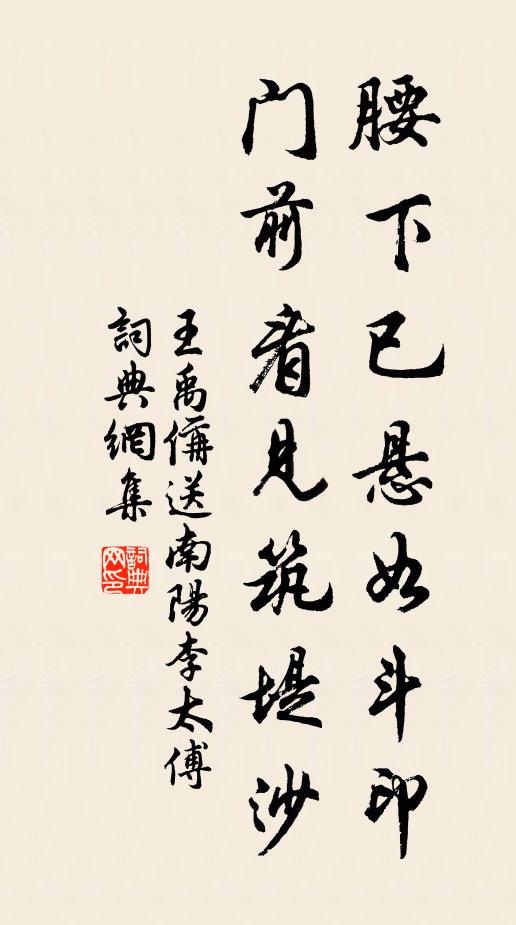 腰下已悬如斗印
门前看见筑堤沙
王禹偁送南陽李太傅
詞典網集
詞典网印